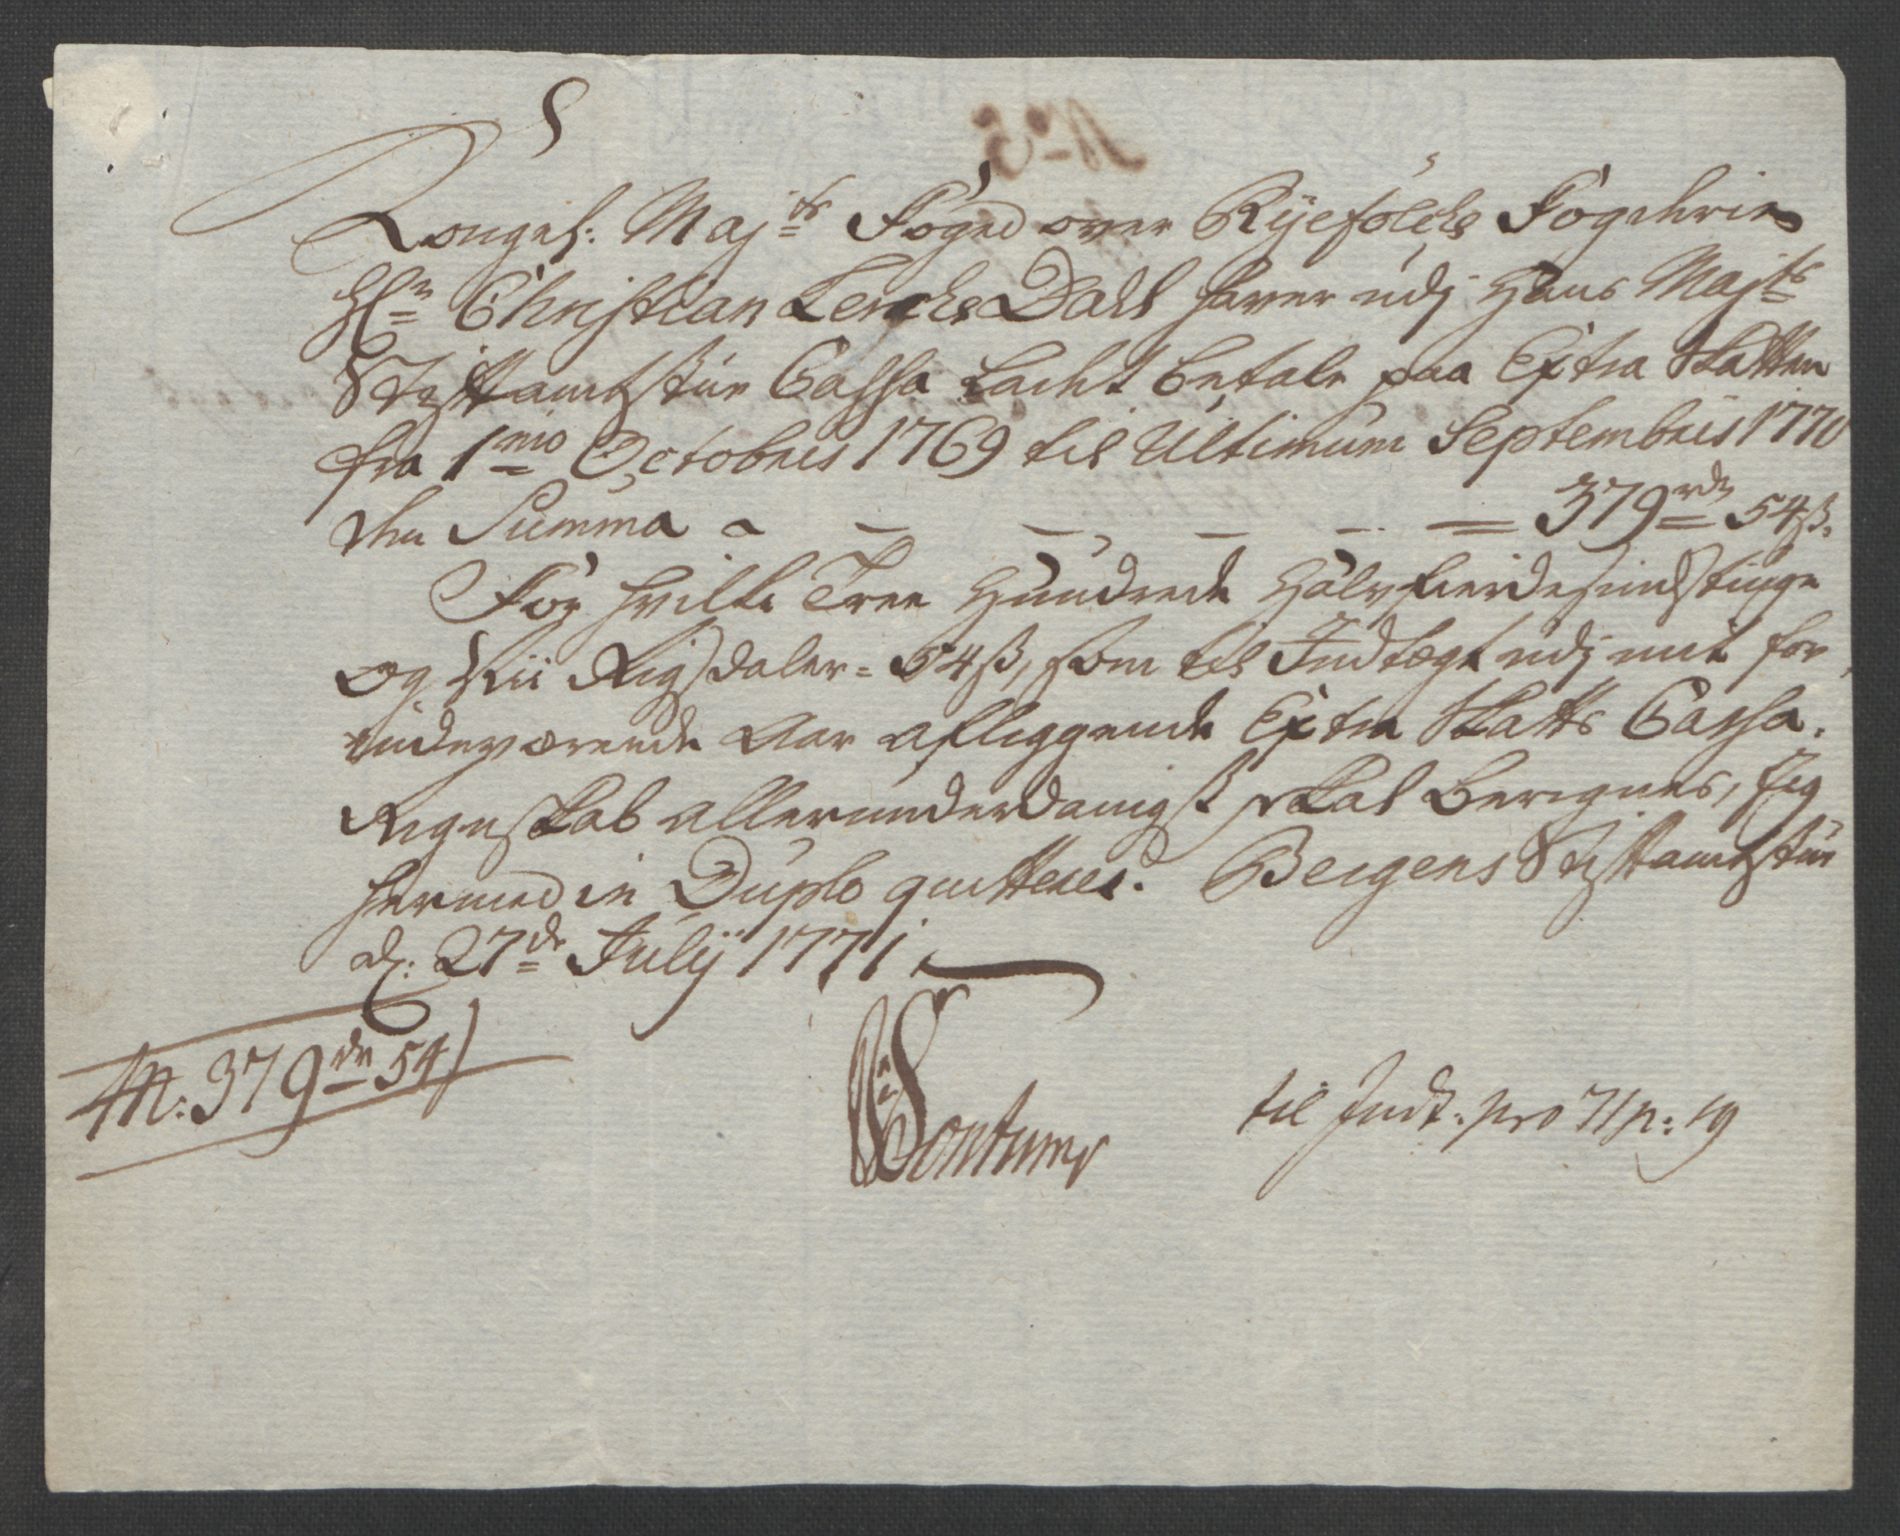 Kongel: Maj:ts Foged over Ryefölche Fogderie
Hr: Christian Lerche Dahl haver udj Hans Maj:ts
Stiftamtstue Cassa Ladet betale paa Extra Skatten
fra 1mo Octobris 1769 til Ultimum Septembris 1770
den Summa - - - - - = 379 rdr 54 ß.
For hvilke Tree Hundrede Halvfierdesindstiuge
og Nii Rigsdaler = 54 ß, som til Indtægt udj mit for
indeværende Aar aflæggende Extra Skatts Cassa
Regnskab allerunderdanigst skal beregnes, jeg
hermed in Duplo qvitterer. Bergens Stiftamtstue
d: 27de Julij 1771.
379 rdr 54 ß
Fontener
til Indt: pro 71 p: 19
No 5